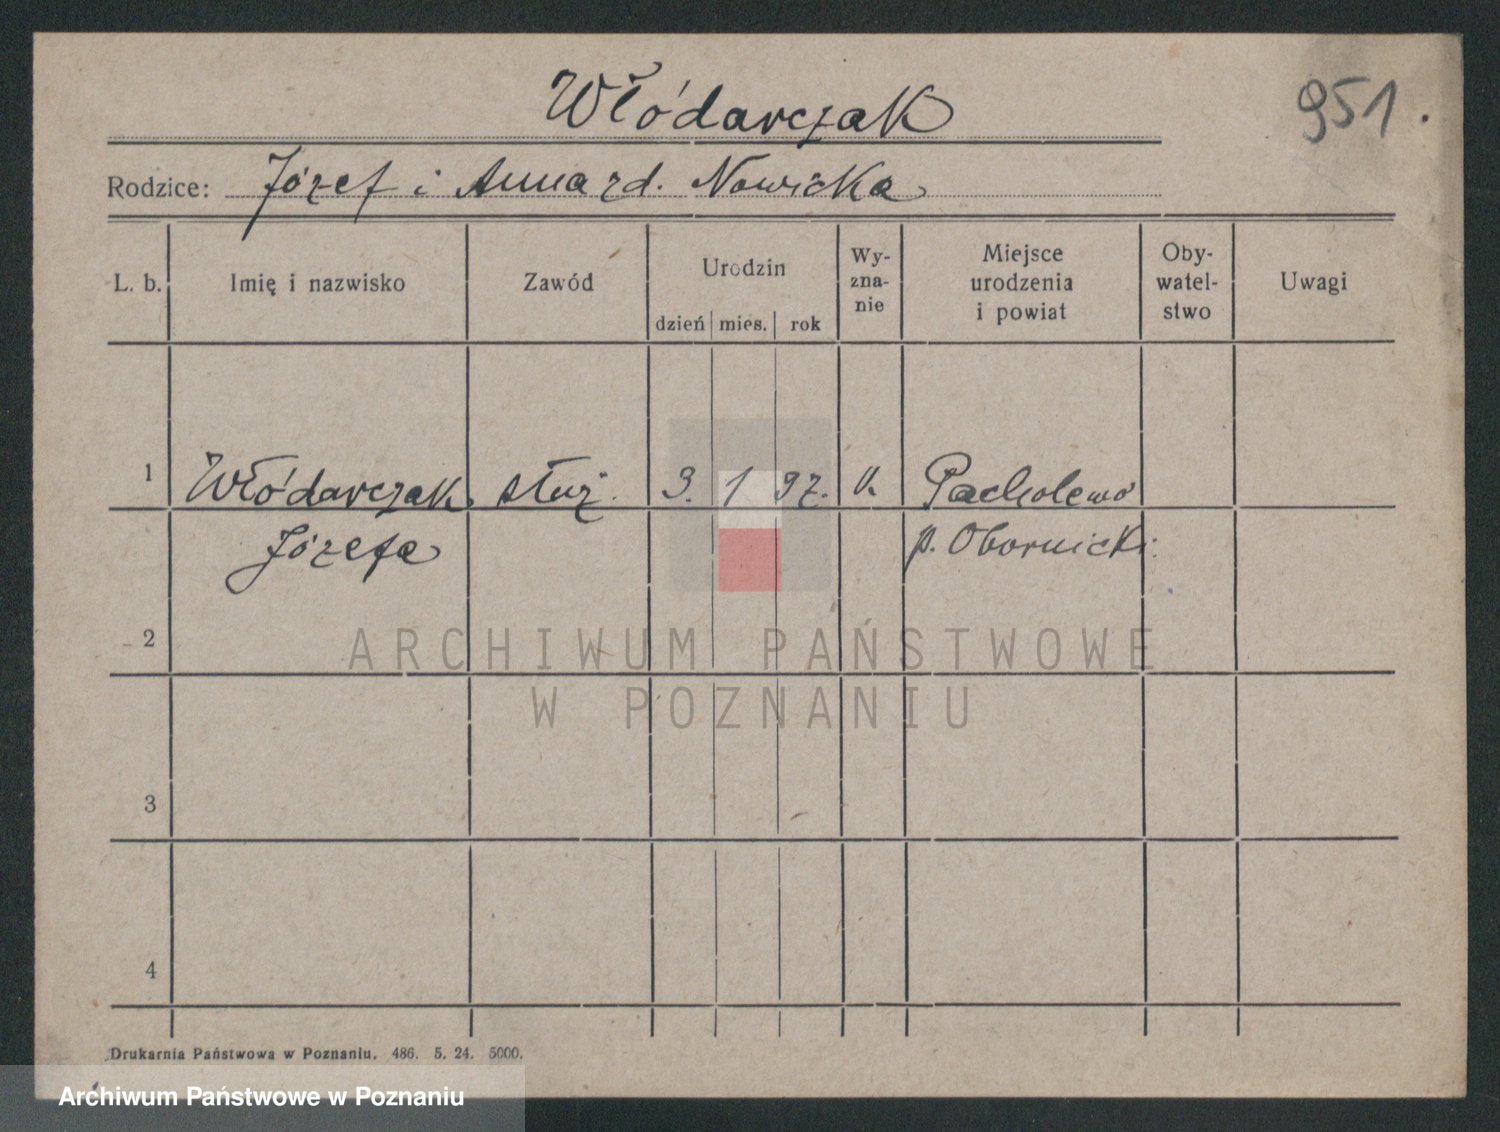 Włódarczak
951.
Rodzice: Józef i Anna zd. Nowicka
L. b. Imię i nazwisko Zawód Urodzin Wy-zna-nie Miejsce urodzenia i powiat Oby-watel-stwo Uwagi
dzień mies. rok
1 Włódarczak służ. 3. 1 97. k. Pacholewo
Józefa p. Obornicki
2
ARCHIWUM PAŃSTWOWE
W POZNANIU
3
4
Drukarnia Państwowa w Poznaniu. 486. 5. 24. 5000.
Archiwum Państwowe w Poznaniu